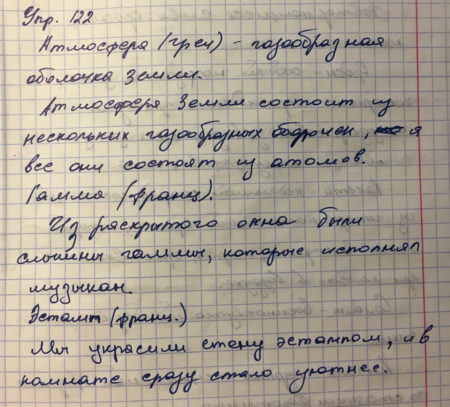 Упр. 122
Атмосфера (греч) - газообразная
оболочка Земли.
Атмосфера Земли состоит из
нескольких газообразных , а
все они состоят из атомов.
Гамма (франц).
Из раскрытого окна были
слышны гаммы, которые исполнял
музыкан
Эстамп (франц.)
Мы украсили стену эстампом, и в
комнате сразу стало уютнее.